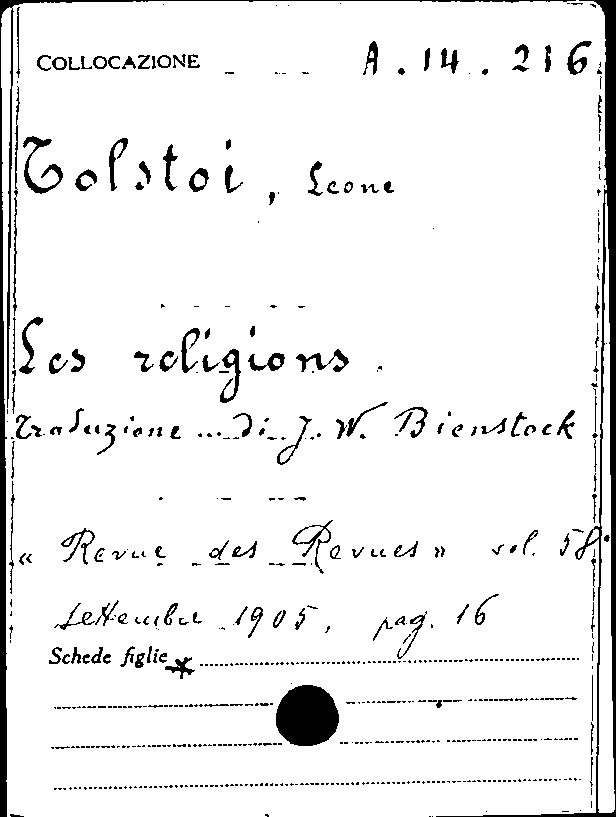 COLLOCAZIONE A. 14. 216
Tolstoi, Leone
Les religions.
Traduzione ... di J. W. Bienstock
« Revue des Revues » vol. 58°
settembre 1905, pag. 16
Schede figlie *